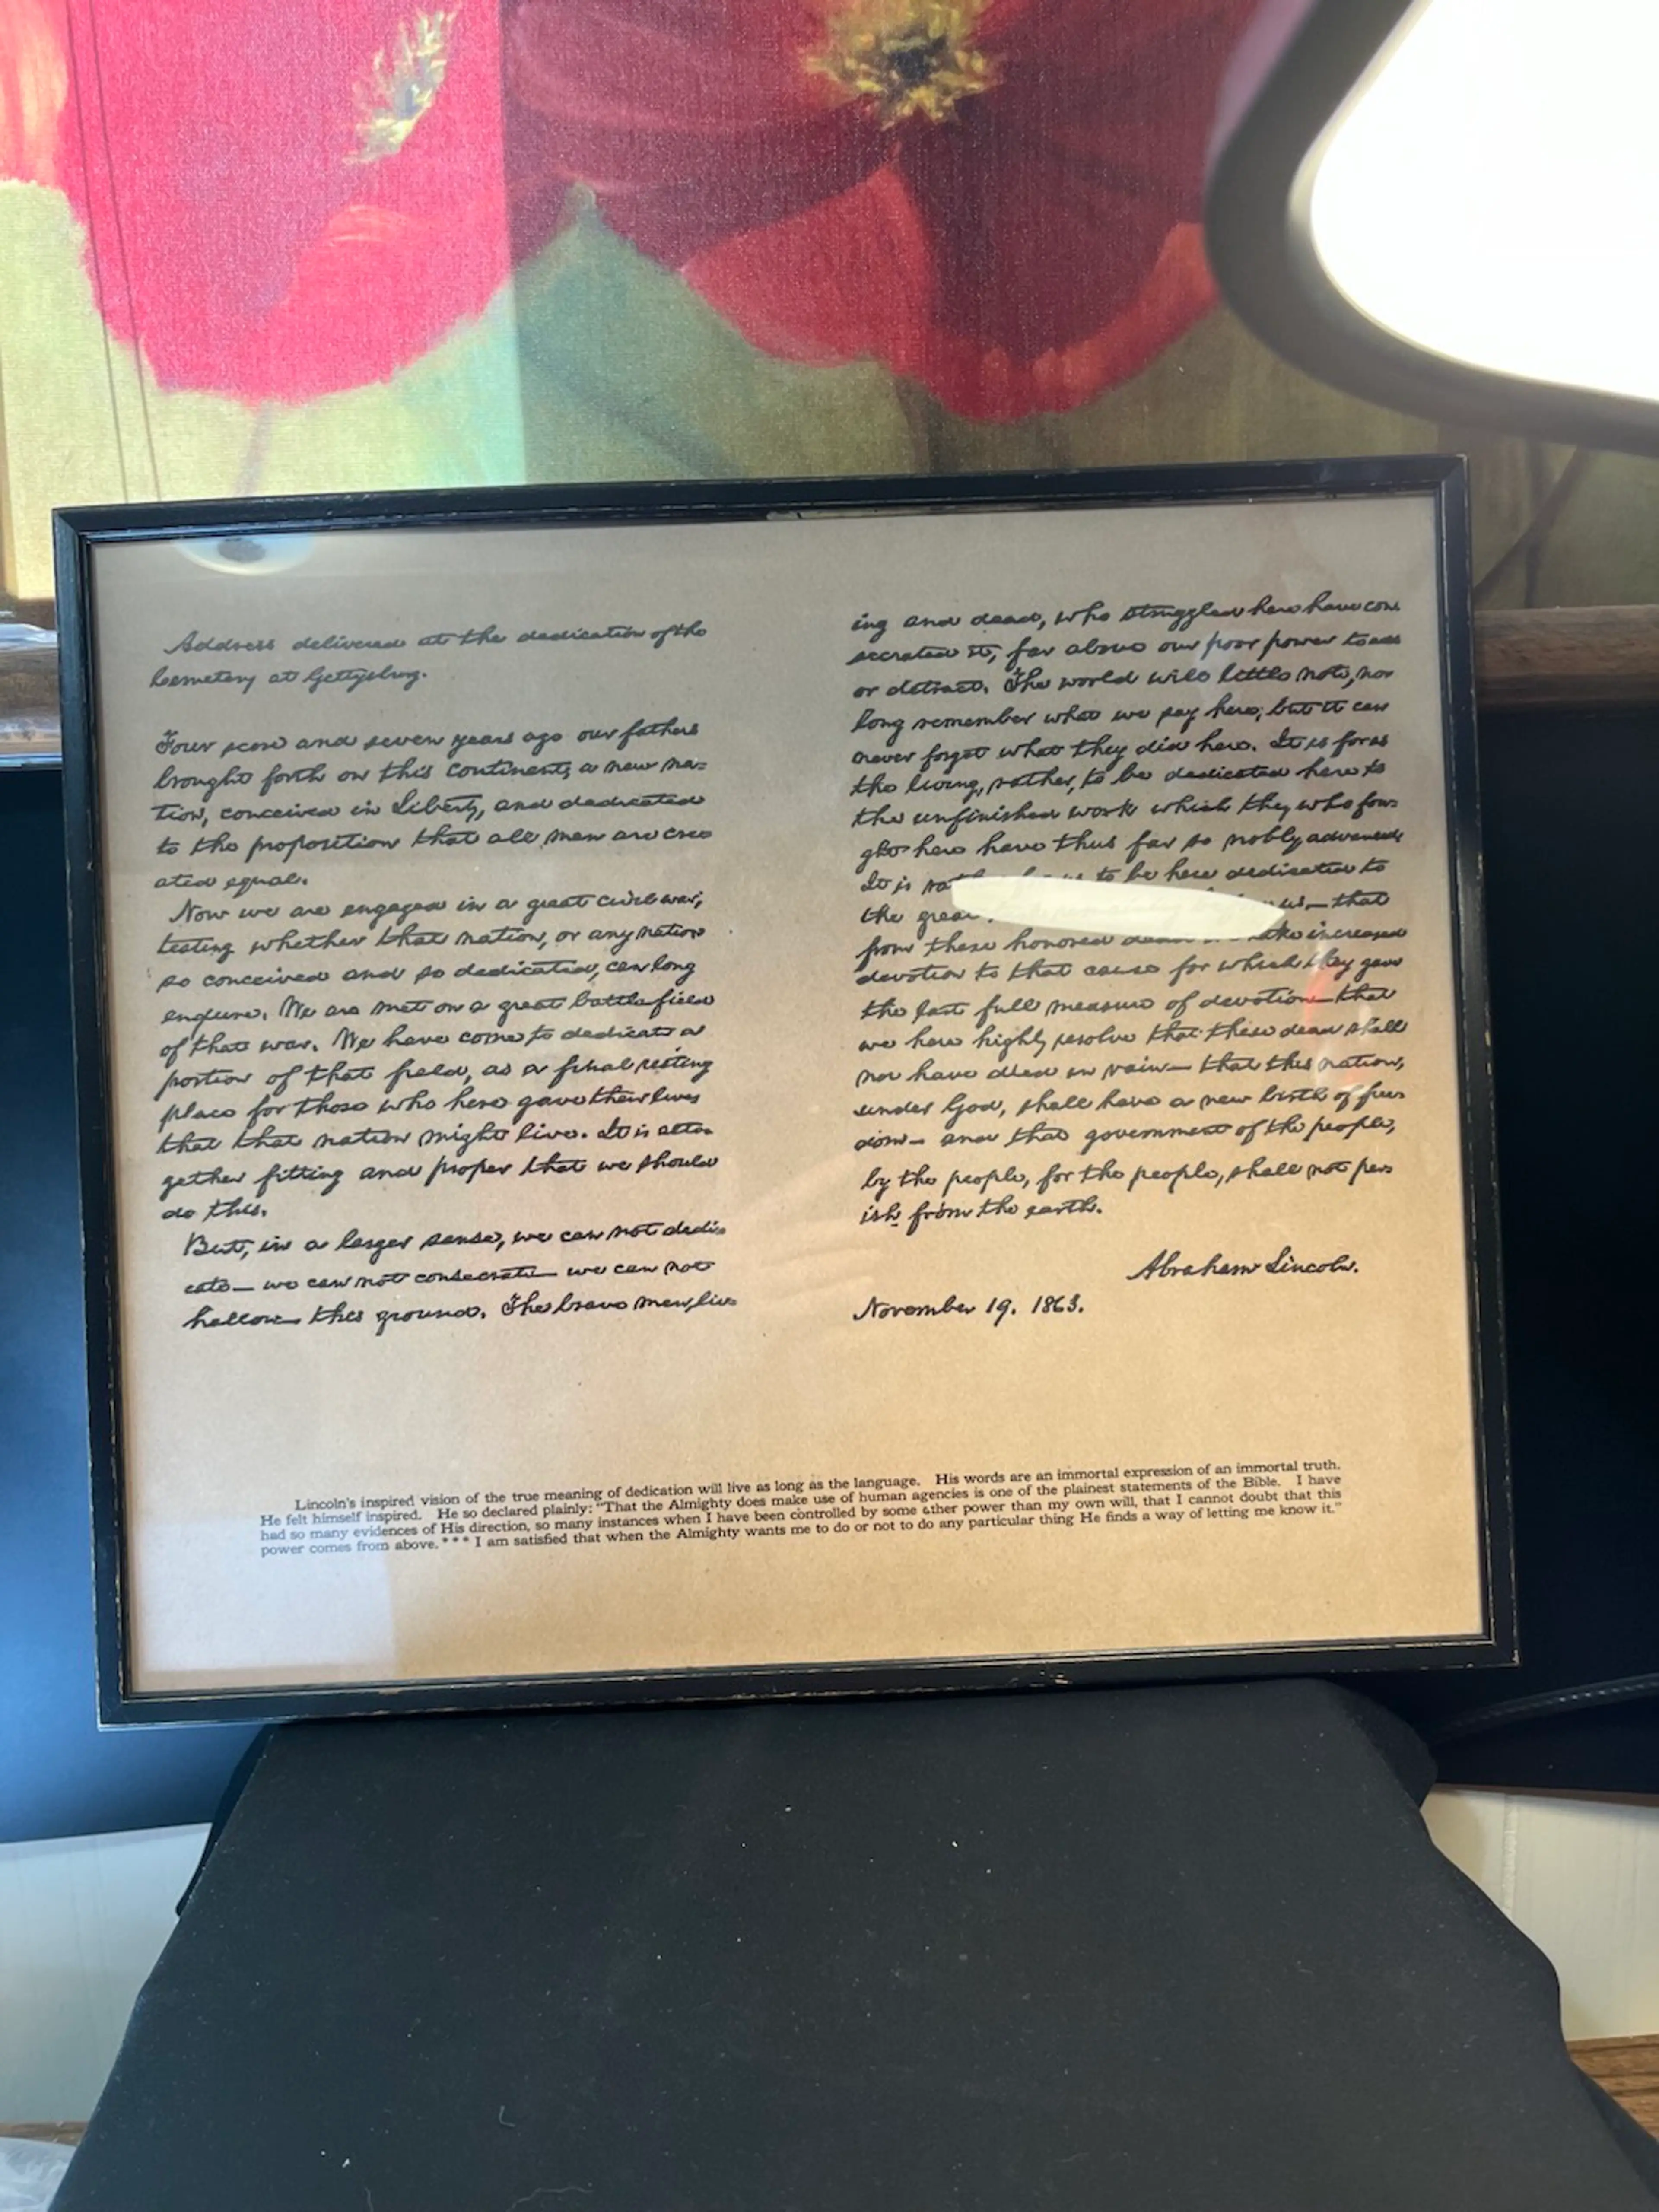 Address delivered at the dedication of the
Cemetery at Gettysburg.
Four score and seven years ago our fathers
brought forth on this continent, a new na-
tion, conceived in Liberty, and dedicated
to the proposition that all men are cre-
ated equal.
Now we are engaged in a great civil war,
testing whether that nation, or any nation
so conceived and so dedicated, can long
endure. We are met on a great battle-field
of that war. We have come to dedicate a
portion of that field, as a final resting
place for those who here gave their lives
that that nation might live. It is alto-
gether fitting and proper that we should
do this.
But, in a larger sense, we can not dedi-
cate— we can not consecrate— we can not
hallow— this ground. The brave men, liv-
ing and dead, who struggled here have con-
secrated it, far above our poor power to add
or detract. The world will little note, nor
long remember what we say here, but it can
never forget what they did here. It is for us
the living, rather, to be dedicated here to
the unfinished work which they who fou-
ght here have thus far so nobly advanced
It is to be here dedicated to
the great us— that
from these honored increased
devotion to that cause for which they gave
the last full measure of devotion— that
we here highly resolve that these dead shall
not have died in vain— that this nation,
under God, shall have a new birth of free-
dom— and that government of the people,
by the people, for the people, shall not per-
ish from the earth.
Abraham Lincoln.
November 19. 1863.
Lincoln's inspired vision of the true meaning of dedication will live as long as the language. His words are an immortal expression of an immortal truth.
He felt himself inspired. He so declared plainly: "That the Almighty does make use of human agencies is one of the plainest statements of the Bible. I have
had so many evidences of His direction, so many instances when I have been controlled by some other power than my own will, that I cannot doubt that this
power comes from above. * * * I am satisfied that when the Almighty wants me to do or not to do any particular thing He finds a way of letting me know it."